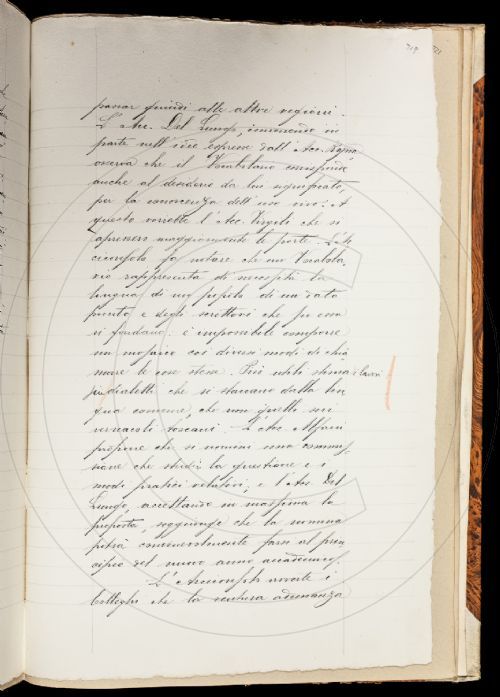 719
passar quindi alle altre regioni.
L'Acc. Del Lungo, convenendo in
parte nell'idee espresse dall'Acc. Rigu
osserva che il Vocabolario corrisponde
anche al desiderio da lui significato,
per la conoscenza dell'uso vivo: A
questo vorrebbe l'Acc. Vegoli che si
aprissero maggiormente le porte. L'Ar
ciconsolo fa notare che un Vocabola
rio rappresenta di necessità la
lingua di un popolo di un dato
punto, e degli scrittori che su essa
si fondano: è impossibile comporre
un mosaico coi diversi modi di chia
mare le cose stesse. Più utili stima i lavori
sui dialetti che si staccano dalla lin
gua comune, che non quelli sui
vernacoli toscani. – L'Acc. Alfani
propone che si nomini una commis
sione che studi la questione e i
modi pratici relativi; e l'Acc. Del
Lungo, accettando in massima la
proposta, soggiunge che la nomina
potrà convenevolmente farsi al prin
cipio del nuovo anno accademico.
L'Arciconsolo avverte i
Colleghi che la ventura adunanza